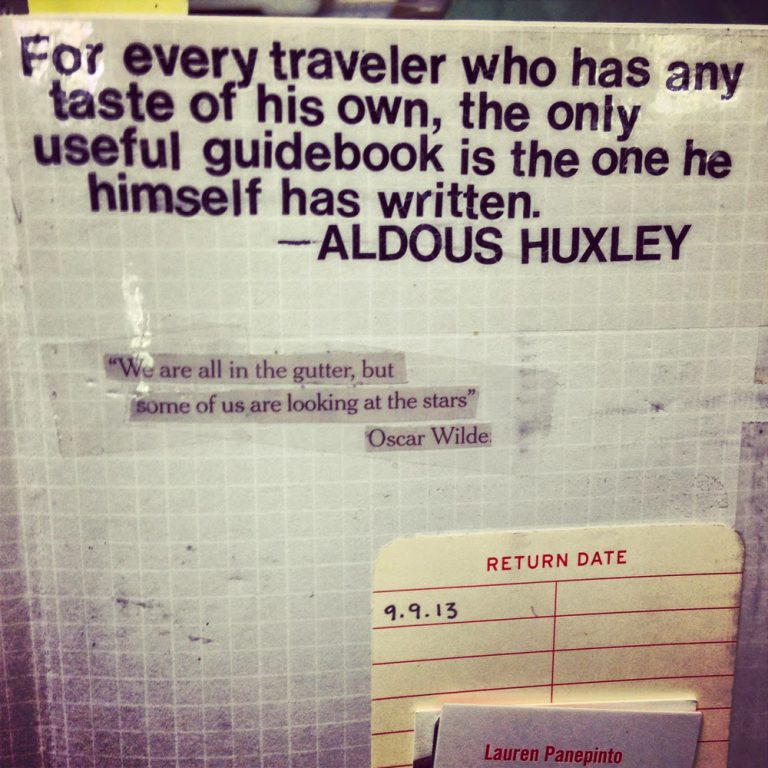 For every traveler who has any
taste of his own, the only
useful guidebook is the one he
himself has written.
—ALDOUS HUXLEY
“We are all in the gutter, but
some of us are looking at the stars”
Oscar Wilde
RETURN DATE
9.9.13
Lauren Panepinto